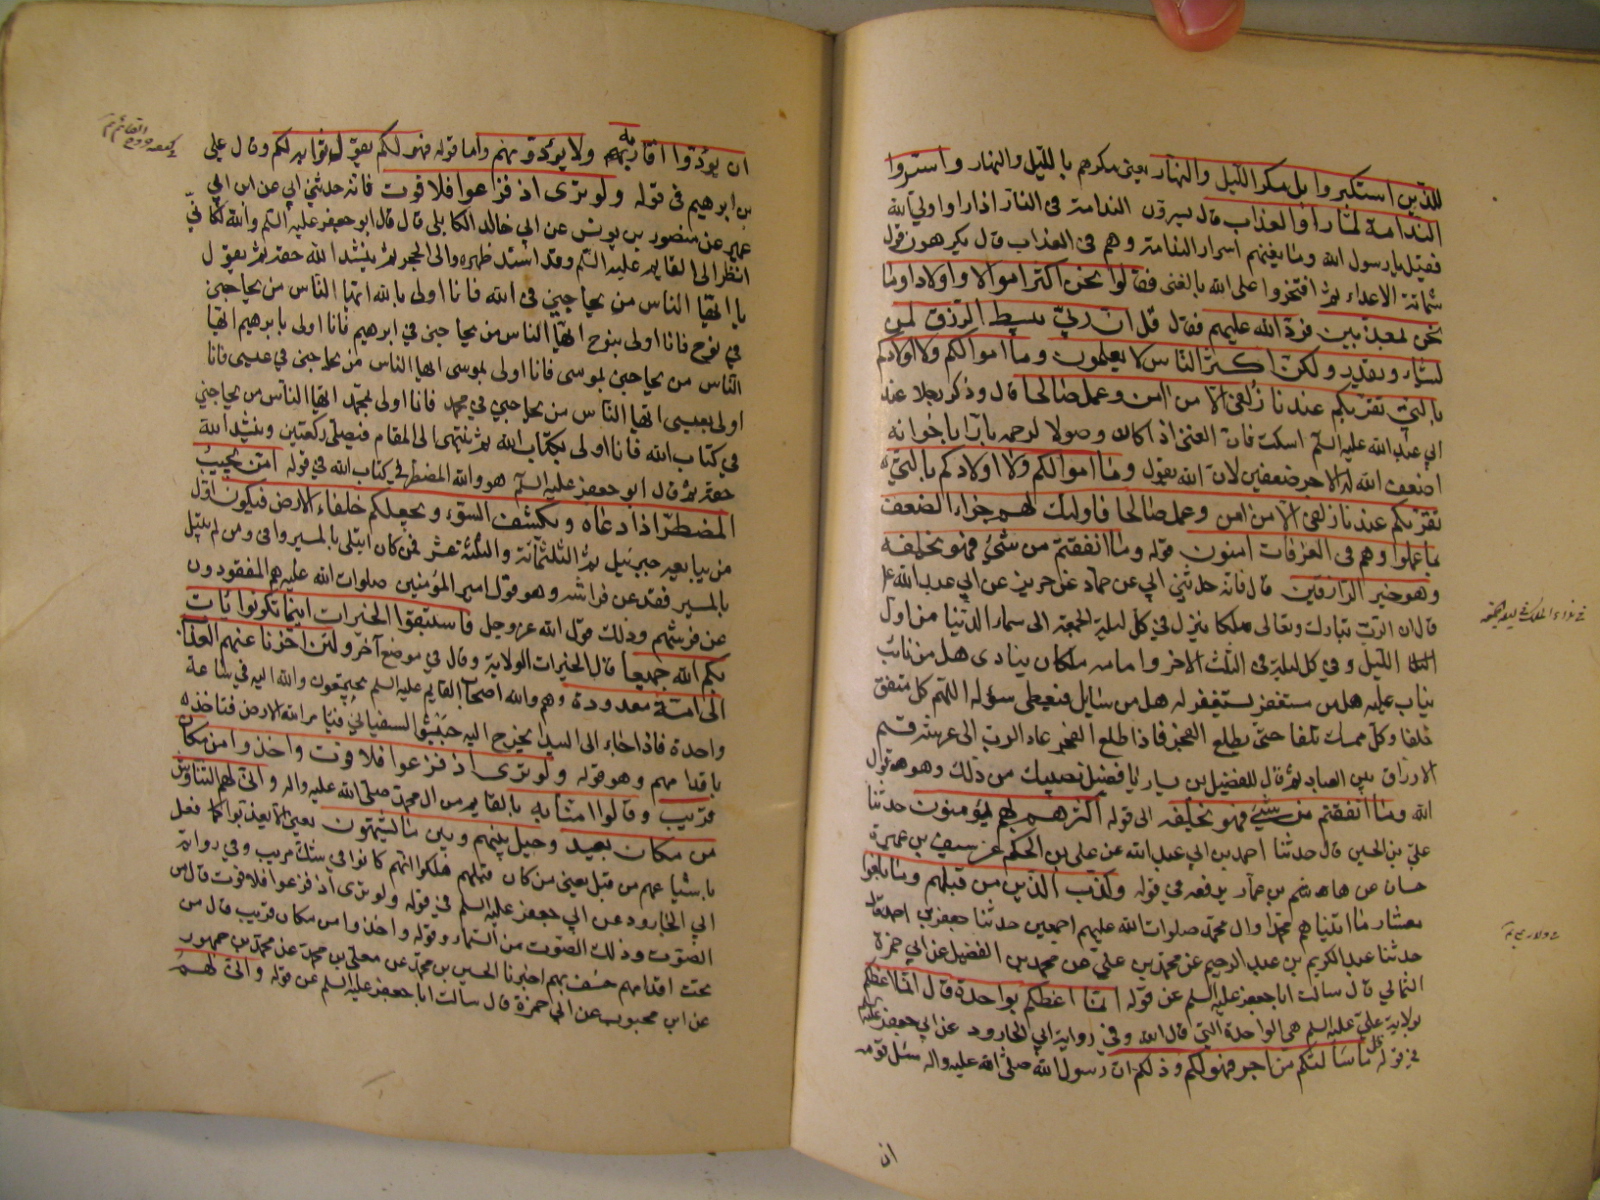 للذين استكبروا بل مكر الليل والنهار يعنى مكرهم بالليل والنهار واسروا
الندامة لما راوا العذاب قال يسرون الندامة فى النار اذا راوا ولى الله
فقيل يا رسول الله وما يغنيهم اسرار الندامة وهم فى العذاب قال يكرهون
شماتة الاعداء ثم افتخروا على الله بالغنى فقالوا نحن اكثر اموالا واولادا وما
نحن بمعذبين فرد الله عليهم فقال قل ان ربى يبسط الرزق لمن
يشاء ويقدر ولكن اكثر الناس لا يعلمون وما اموالكم ولا اولادكم
بالتى تقربكم عندنا زلفى الا من امن وعمل صالحا قال وذكر رجلا عند
ابى عبد الله عليه السلم اسكت فان الغنى اذا كان وصولا لرحمه بارا باخوانه
اضعف الله له الاجر ضعفين لان الله يقول وما اموالكم ولا اولادكم بالتى
تقربكم عندنا زلفى الا من امن وعمل صالحا فاولئك لهم جزاء الضعف
بما عملوا وهم فى الغرفات امنون قوله وما انفقتم من شئ فهو يخلفه
وهو خير الرازقين قال فانه حدثنى ابى عن حماد عن حريز عن ابى عبد الله
قال ان الرب تبارك وتعالى ينزل فى كل ليلة الجمعة الى سماء الدنيا من اول
الليل وفى كل ليلة فى الثلث الاخر وامامه ملكان ينادى هل من تائب
يتاب عليه هل من مستغفر يستغفر له هل من سايل فيعطى سؤله اللهم كل منفق
خلفا وكل ممسك تلفا حتى يطلع الفجر فاذا طلع الفجر عاد الرب الى عرشه فقسم
الارزاق بين العباد ثم قال للفضيل بن يسار يا فضيل نصيبك من ذلك وهو قول
الله وما انفقتم من شئ فهو يخلفه الى قوله اكثرهم بهم مؤمنون حدثنا
على بن الحسين قال حدثنا احمد بن ابى عبد الله عن على بن الحكم عن سيف بن عميرة
حسان عن هاشم بن عمار يرفعه فى قوله وكذب الذين من قبلهم وما بلغوا
معشار ما اتيناهم محمدا وال محمد صلوات الله عليهم اجمعين حدثنا جعفر بن احمد قال
حدثنا عبد الكريم بن عبد الرحيم عن محمد بن على عن محمد بن الفضيل عن ابى حمزة
الثمالى قال سالت ابا جعفر عليه السلم عن قوله انما اعظكم بواحدة قال انما اعظكم
بولاية على عليه السلم هى الواحدة التى قال الله وفى رواية ابى الجارود عن ابى جعفر عليه
فى قوله قل ما سالتكم من اجر فهو لكم وذلك ان رسول الله صلى الله عليه واله سئل قومه
ان
ان يودوا اقاربه ولا يوذونهم واما قوله فهو لكم يقول ثوابه لكم وقال على
بن ابرهيم فى قوله ولو ترى اذ فزعوا فلا فوت فانه حدثنى ابى عن ابن ابى
عمير عن منصور بن يونس عن ابى خالد الكابلى قال قال ابو جعفر عليه السلم والله لكانى
انظر الى القايم عليه السلم وقد استند ظهره الى الحجر ثم ينشد الله حقه ثم يقول
يا ايها الناس من يحاجنى فى الله فانا اولى بالله ايها الناس من يحاجنى
فى نوح فانا اولى بنوح ايها الناس من يحاجنى فى ابرهيم فانا اولى بابرهيم ايها
الناس من يحاجنى بموسى فانا اولى بموسى ايها الناس من يحاجنى فى عيسى فانا
اولى بعيسى ايها الناس من يحاجنى فى محمد فانا اولى بمحمد ايها الناس من يحاجنى
فى كتاب الله فانا اولى بكتاب الله ثم ينتهى الى المقام فيصلى ركعتين وينشد الله
حقه ثم قال ابو جعفر عليه السلم هو والله المضطر فى كتاب الله فى قوله امن يجيب
المضطر اذا دعاه ويكشف السوء ويجعلكم خلفاء الارض فيكون اول
من يبايعه جبرئيل ثم الثلثمائة والثلثة عشر فمن كان ابتلى بالمسير وافى ومن لم يبتل
بالمسير فقد عن فراشه وهو قول امير المؤمنين صلوات الله عليه هم المفقودون
عن فرشهم وذلك قول الله عز وجل فاستبقوا الخيرات اينما تكونوا يات
بكم الله جميعا قال الخيرات الولاية وقال فى موضع آخر ولئن اخرنا عنهم العذاب
الى امة معدودة وهم والله اصحاب القايم عليه السلم يجتمعون والله اليه فى ساعة
واحدة فاذا جاء الى البيداء يخرج اليه جيش السفيانى فيامر الله الارض فتاخذ
باقدامهم وهو قوله ولو ترى اذ فزعوا فلا فوت واخذوا من مكان
قريب وقالوا امنا به بالقايم من ال محمد صلى الله عليه واله وانى لهم التناوش
من مكان بعيد وحيل بينهم وبين ما يشتهون يعنى الا يعذبوا كما فعل
باشياعهم من قبل يعنى من كان قبلهم هلكوا انهم كانوا فى شك مريب وفى رواية
ابى الجارود عن ابى جعفر عليه السلم فى قوله ولو ترى اذ فزعوا فلا فوت قال من
الصوت وذلك الصوت من السماء وقوله واخذوا من مكان قريب قال من
تحت اقدامهم خسف بهم اخبرنا الحسين بن محمد عن معلى بن محمد عن محمد بن جمهور
عن ابن محبوب عن ابى حمزة قال سالت ابا جعفر عليه السلم عن قوله وانى لهم